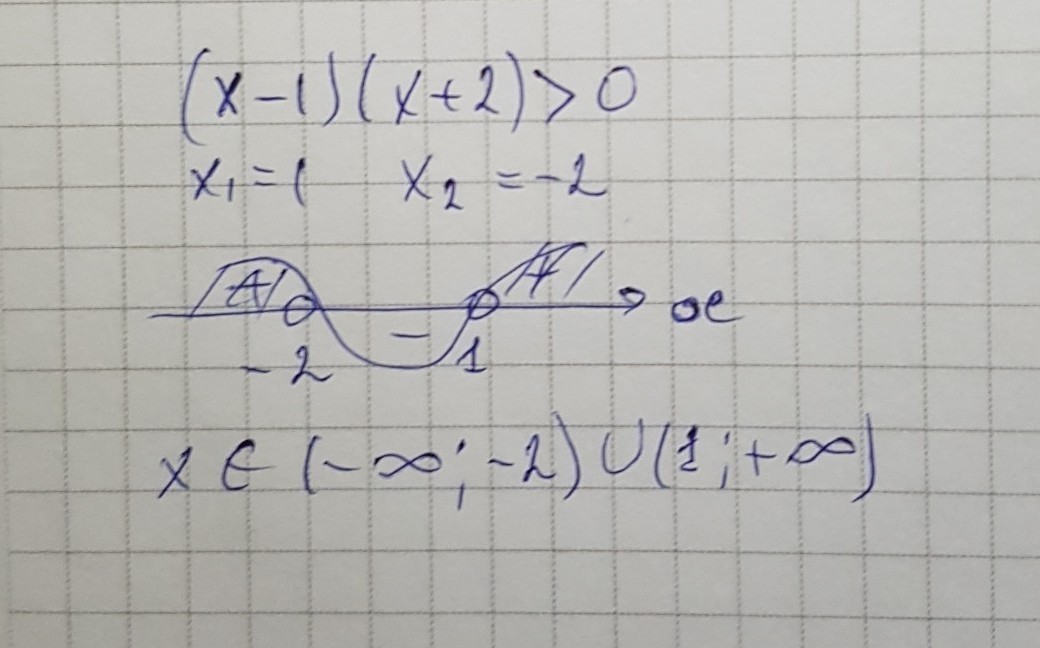 (x-1)(x+2)>0
x₁=1 x₂=-2
+ - + x
-2 1
x∈(-∞;-2)∪(1;+∞)